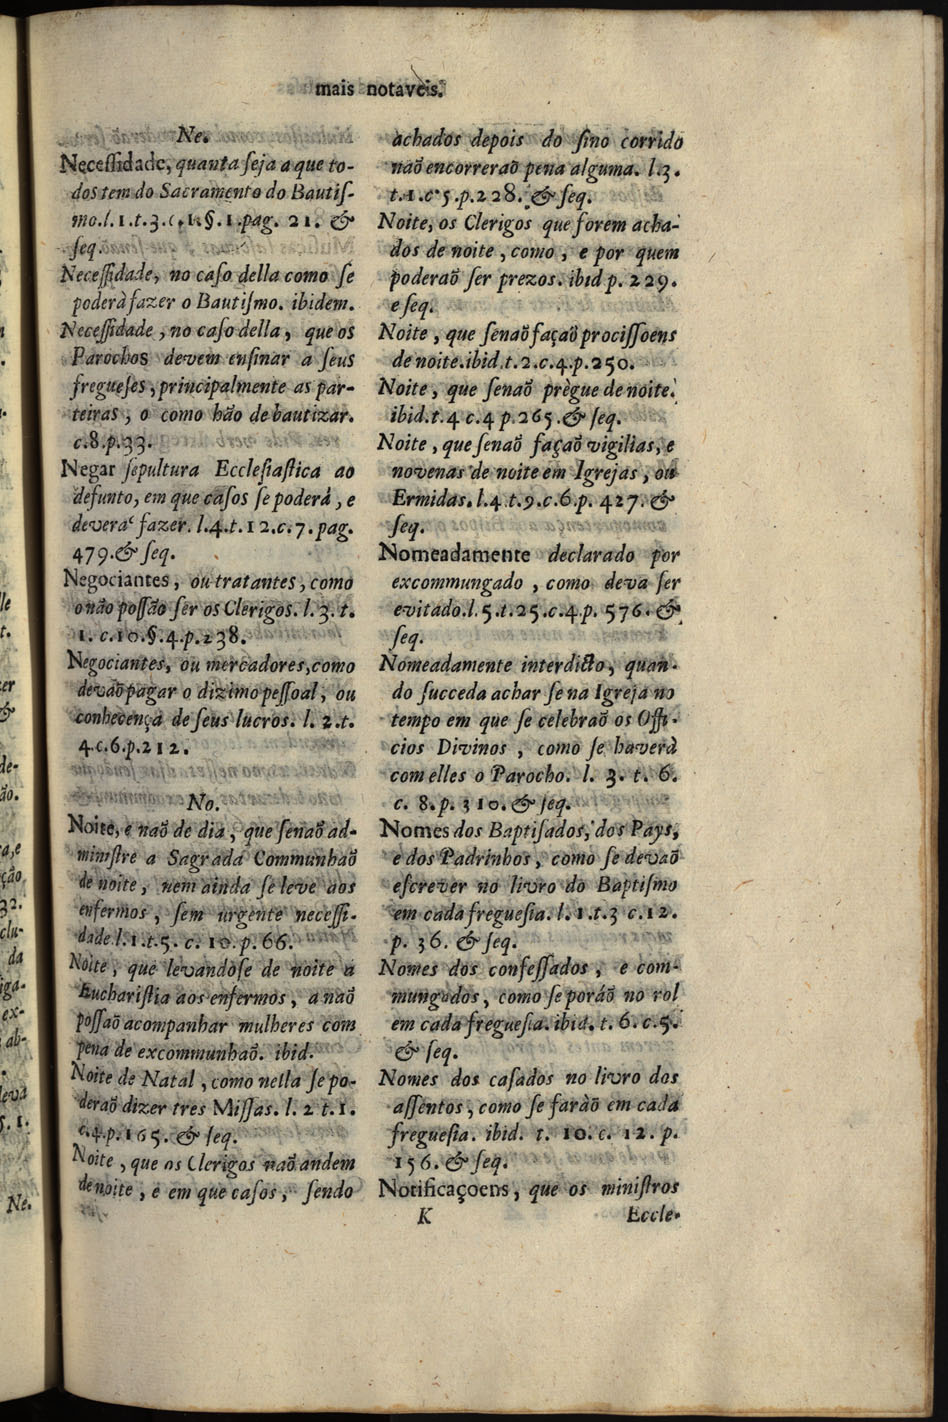 mais notaveis.
Ne.
Necessidade, quanta seja a que to-
dos tem do Sacramento do Bautis-
mo. l. 1. t. 3. c. 1. §. 1. pag. 21. &
seq.
Necessidade, no caso della como se
poderà fazer o Bautismo. ibidem.
Necessidade, no caso della, que os
Parochos devem ensinar a seus
fregueses, principalmente as par-
teiras, o como hão de bautizar.
c. 8. p. 33.
Negar sepultura Ecclesiastica ao
defunto, em que casos se poderá, e
deverá fazer. l. 4. t. 12. c. 7. pag.
479. & seq.
Negociantes, ou tratantes, como
o não possão ser os Clerigos. l. 3. t.
1. c. 10. §. 4. p. 238.
Negociantes, ou mercadores, como
devaõ pagar o dizimo pessoal, ou
conhecença de seus lucros. l. 2. t.
4. c. 6. p. 212.
No.
Noite, e naõ de dia, que senaõ ad-
ministre a Sagrada Communhaõ
de noite, nem ainda se leve aos
enfermos, sem urgente necessi-
dade. l. 1. t. 5. c. 10. p. 66.
Noite, que levandose de noite a
Eucharistia aos enfermos, a naõ
possaõ acompanhar mulheres com
pena de excommunhaõ. ibid.
Noite de Natal, como nella se po-
deraõ dizer tres Missas. l. 2 t. 1.
c. 4. p. 165. & seq.
Noite, que os Clerigos naõ andem
de noite, e em que casos, sendo
achados depois do sino corrido
naõ encorreraõ pena alguma. l. 3.
t. 1. c. 5. p. 228. & seq.
Noite, os Clerigos que forem acha-
dos de noite, como, e por quem
poderaõ ser prezos. ibid p. 229.
e seq.
Noite, que senaõ façaõ procissoens
de noite. ibid. t. 2. c. 4. p. 250.
Noite, que senaõ prègue de noite.
ibid. t. 4 c. 4 p. 265. & seq.
Noite, que senaõ façaõ vigilias, e
novenas de noite em Igrejas, ou
Ermidas. l. 4. t. 9. c. 6. p. 427. &
seq.
Nomeadamente declarado por
excommungado, como deva ser
evitado. l. 5. t. 25. c. 4. p. 576. &
seq.
Nomeadamente interdicto, quan-
do succeda achar se na Igreja no
tempo em que se celebraõ os Offi-
cios Divinos, como se haverà
com elles o Parocho. l. 3. t. 6.
c. 8. p. 310. & seq.
Nomes dos Baptisados, dos Pays,
e dos Padrinhos, como se devaõ
escrever no livro do Baptismo
em cada freguesia. l. 1. t. 3 c. 12.
p. 36. & seq.
Nomes dos confessados, e com-
mungados, como se poráõ no rol
em cada freguesia. ibid. t. 6. c. 5.
& seq.
Nomes dos casados no livro dos
assentos, como se faràõ em cada
freguesia. ibid. t. 10. c. 12. p.
156. & seq.
Notificaçoens, que os ministros
K Eccle-
Ne.